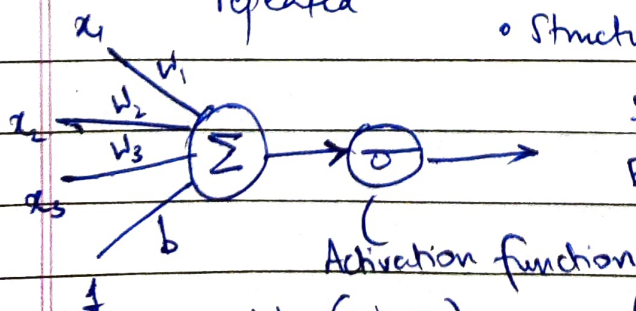 repeated
• Struct
x₁
W₁
x₂ W₂
W₃ Σ σ
x₃
b
Activation function
1